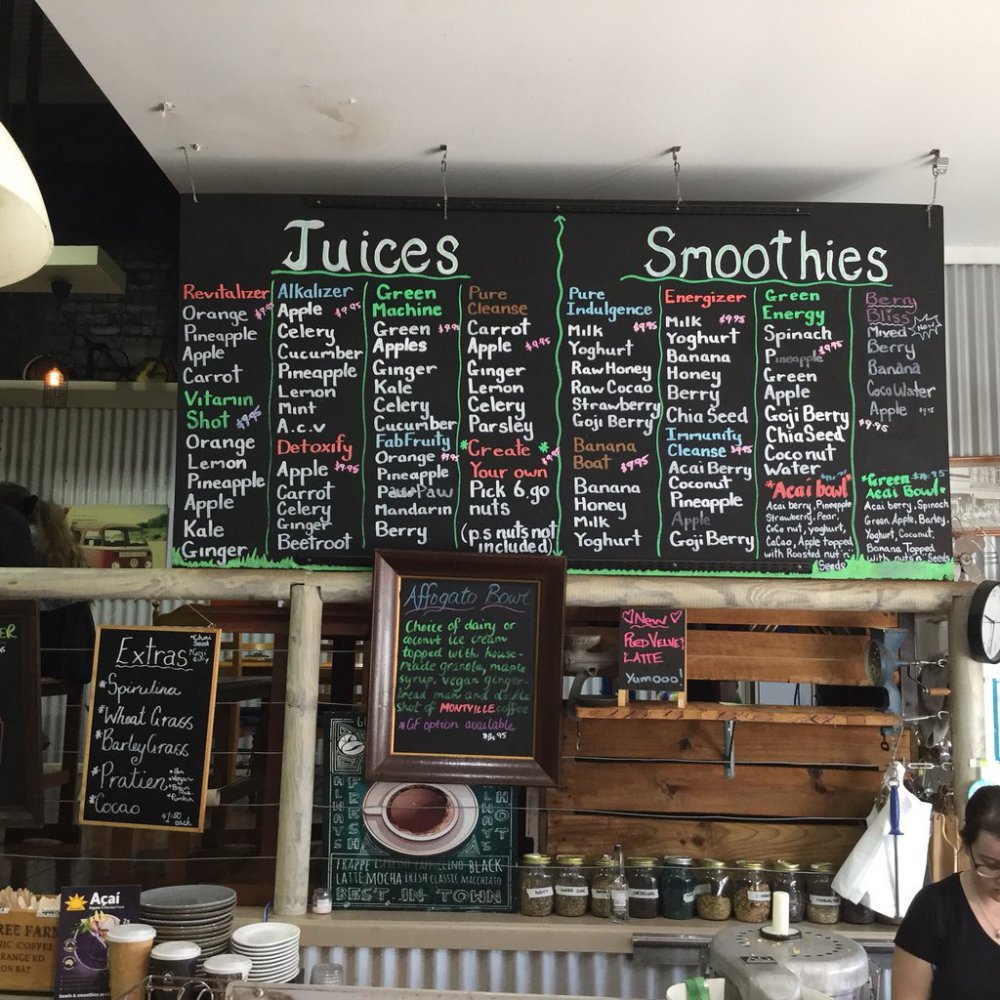 Juices
Revitalizer
Orange $9.95
Pineapple
Apple
Carrot
Vitamin
Shot $9.95
Orange
Lemon
Pineapple
Apple
Kale
Ginger
Alkalizer
Apple $9.95
Celery
Cucumber
Pineapple
Lemon
Mint
A.c.v
Detoxify
Apple $9.95
Carrot
Celery
Ginger
Beetroot
Green
Machine
Green $9.95
Apples
Ginger
Kale
Celery
Cucumber
FabFruity
Orange $9.95
Pineapple
PawPaw
Mandarin
Berry
Pure
Cleanse
Carrot
Apple $9.95
Ginger
Lemon
Celery
Parsley
*Create*
Your own
Pick 6,go
nuts
(p.s nuts not
included)
Smoothies
Pure
Indulgence
Milk $9.95
Yoghurt
Raw Honey
Raw Cocao
Strawberry
Goji Berry
Banana
Boat $9.95
Banana
Honey
Milk
Yoghurt
Energizer
Milk $9.95
Yoghurt
Banana
Honey
Berry
Chia Seed
Immunity
Cleanse $9.95
Acai Berry
Coconut
Pineapple
Apple
Goji Berry
Green
Energy
Spinach
Pineapple $9.95
Green
Apple
Goji Berry
Chia Seed
Coconut
Water
*Acai bowl*
Acai berry, Pineapple
Strawberry, Pear,
CoCo nut, yoghurt,
CaCao, Apple topped
with Roasted nut 'n'
Seeds
Berry
Bliss
New
Mixed
Berry
Banana
CocoWater
Apple
$9.95
*Green $14.95
Acai Bowl*
Acai berry, Spinach
Green Apple, Barley,
Yoghurt, Coconut,
Banana Topped
with nuts 'n' Seeds
Extras
*Chia
Seed
*Goji
*Spirulina
*Wheat Grass
*Barley Grass
*Pratien
*Cocao
each
Affogato Bowl
Choice of dairy or
coconut ice cream
topped with house-
made granola, maple
syrup, vegan ginger
bread man and double
shot of MONTVILLE coffee
*GF option available
$14.95
New
RED VELVET
LATTE
YUMOOO
ALWAYS
FRESH
ALWAYS
HOT
FRAPPE ESPRESSO CAPPUCCINO BLACK
LATTE MOCHA IRISH CLASSIC MACCHIATO
BEST IN TOWN
Açaí
bowls & smoothies